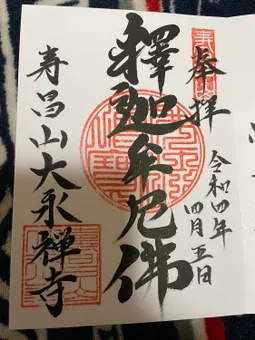 奉拝
令和四年
四月五日
釋迦牟尼佛
寿昌山大永禅寺